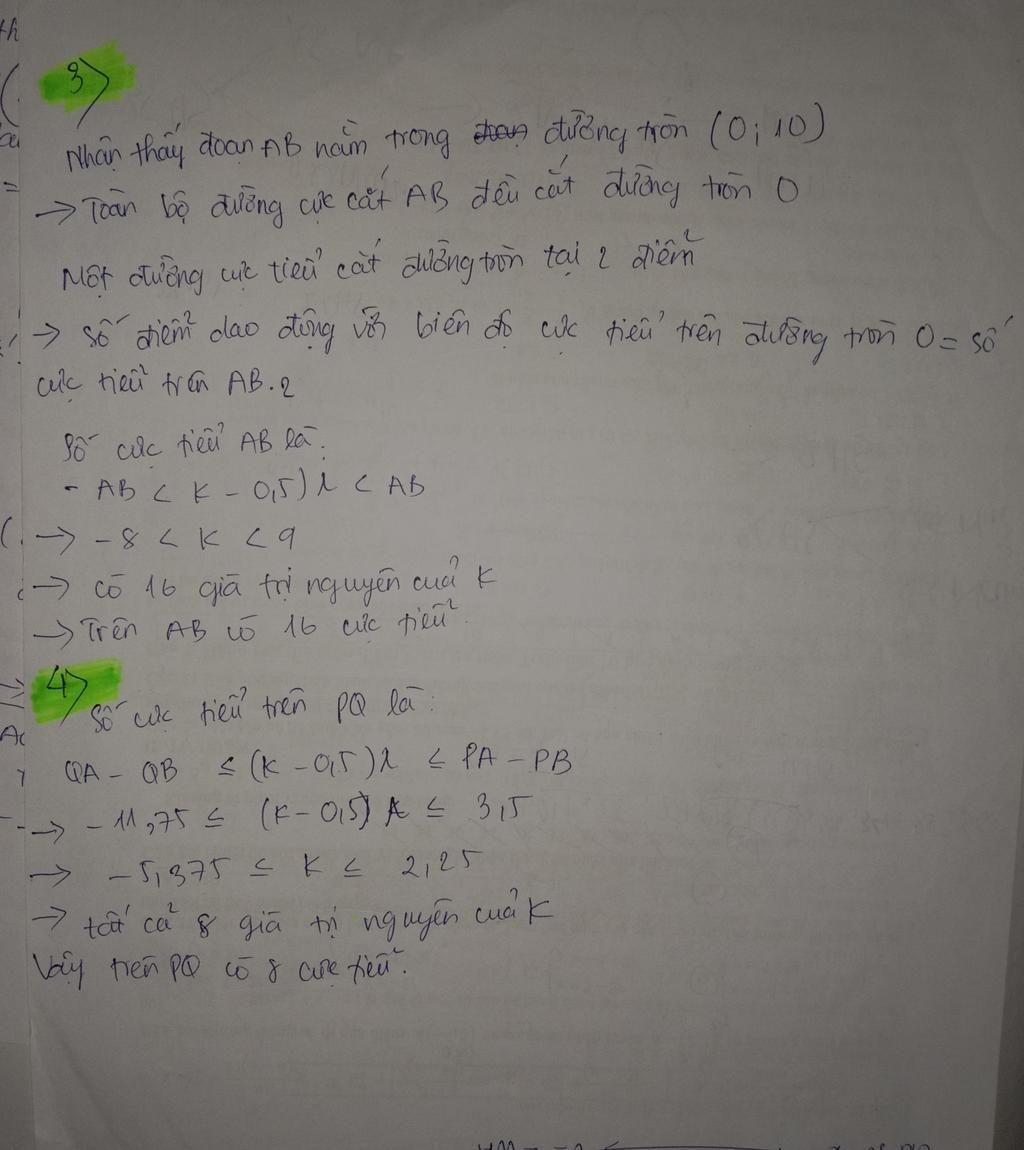 3)
Nhận thấy đoạn AB nằm trong đường tròn (0; 10)
→ Toàn bộ đường cực cắt AB đều cắt đường tròn O
Một đường cực tiểu cắt đường tròn tại 2 điểm
→ số điểm dao động với biên độ cực tiểu trên đường tròn O = số
cực tiểu trên AB.2
Số cực tiểu AB là:
- AB < K - 0,5) λ < AB
→ -8 < K < 9
→ có 16 giá trị nguyên của K
→ Trên AB có 16 cực tiểu.
4)
Số cực tiểu trên PQ là:
QA - QB ≤ (K - 0,5) λ ≤ PA - PB
→ - 11,75 ≤ (K - 0,5) λ ≤ 3,5
→ -5,375 ≤ K ≤ 2,25
→ tất cả 8 giá trị nguyên của K
Vậy trên PQ có 8 cực tiểu.